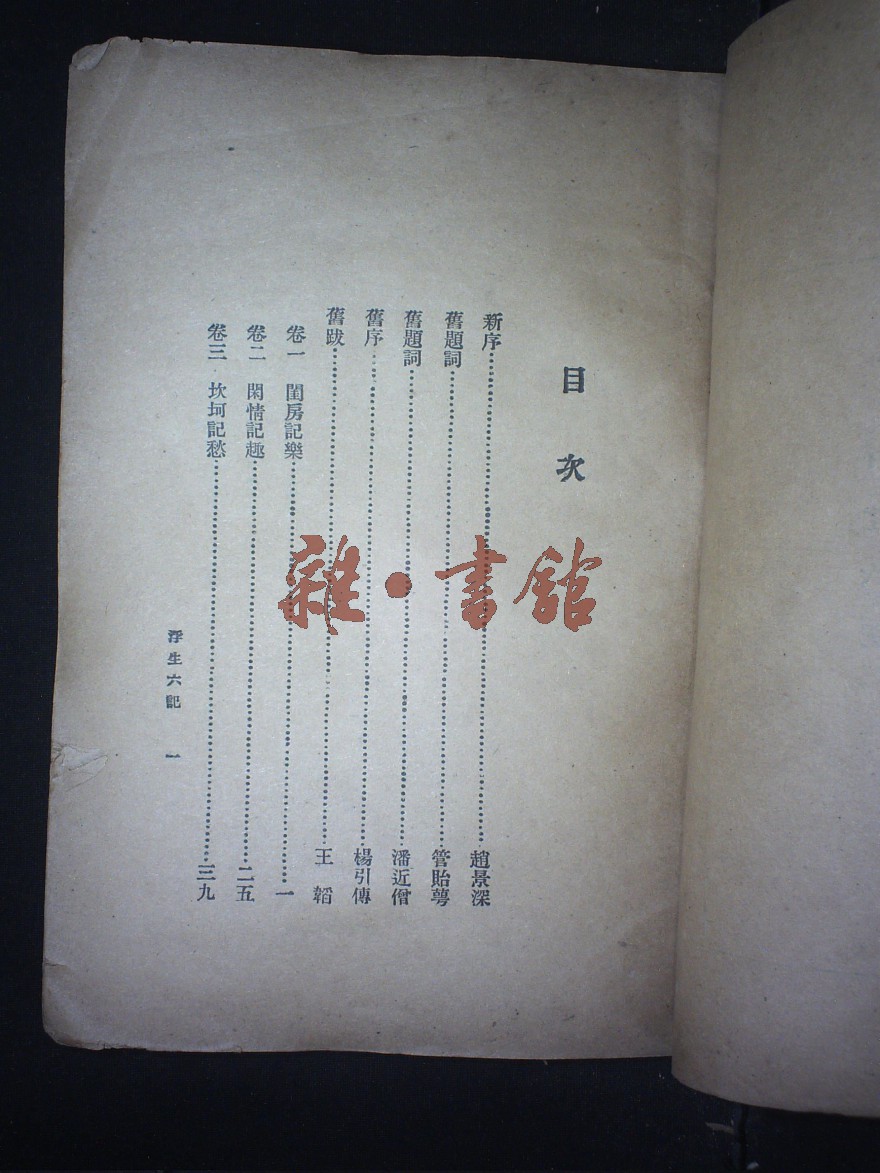 目次
新序……趙景深
舊題詞……管貽萼
舊題詞……潘近僧
舊序……楊引傳
舊跋……王韜
卷一 閨房記樂……一
卷二 閑情記趣……二五
卷三 坎坷記愁……三九
浮生六記 一
雜·書館